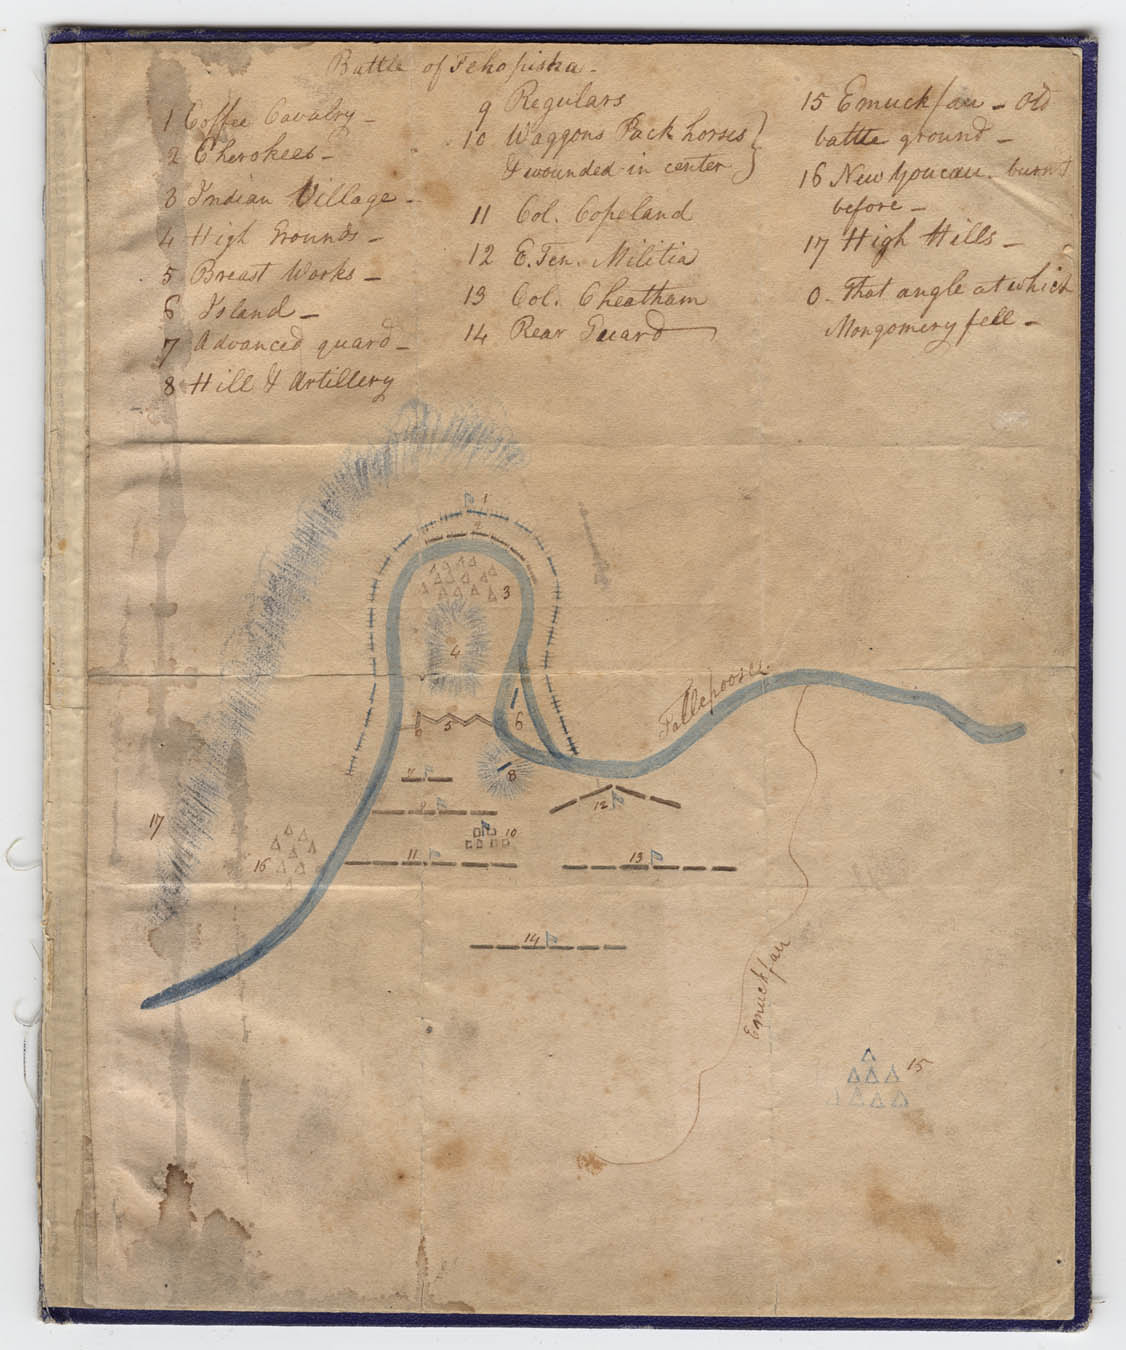 Battle of Tehopiska -
1 Coffee Cavalry -
2 Cherokees -
3 Indian Village -
4 High Grounds -
5 Breast Works -
6 Island -
7 Advanced guard -
8 Hill & Artillery
9 Regulars
10 Waggons Pack horses
& wounded in center
11 Col. Copeland
12 E. Ten. Militia
13 Col. Cheatham
14 Rear Guard
15 Emuckfau - Old
battle ground -
16 New Youcau. burnt
before -
17 High Hills -
0 - That angle at which
Mongomery fell -
1
2
3
4
0
5
6
7
8
9
10
11
12
13
14
15
16
17
Tallepoosee
Emuckfau